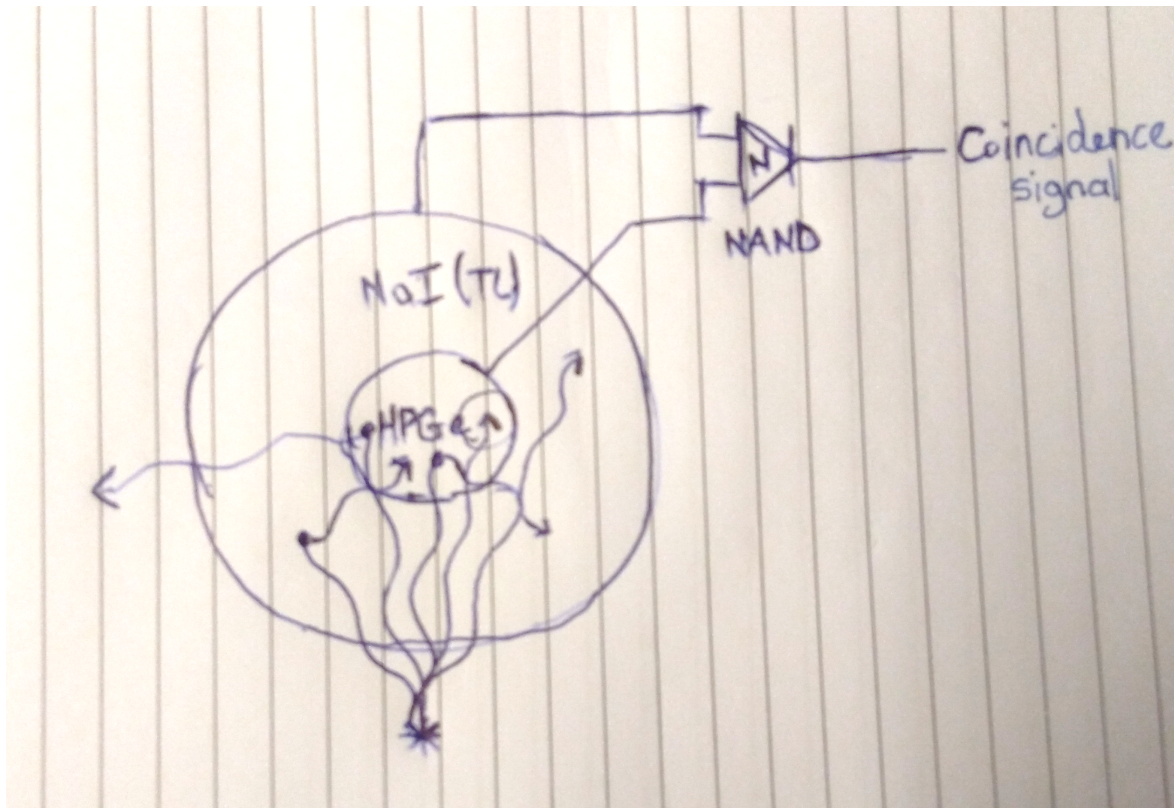 Coincidence
signal
N
NAND
NaI (TL)
HPGe